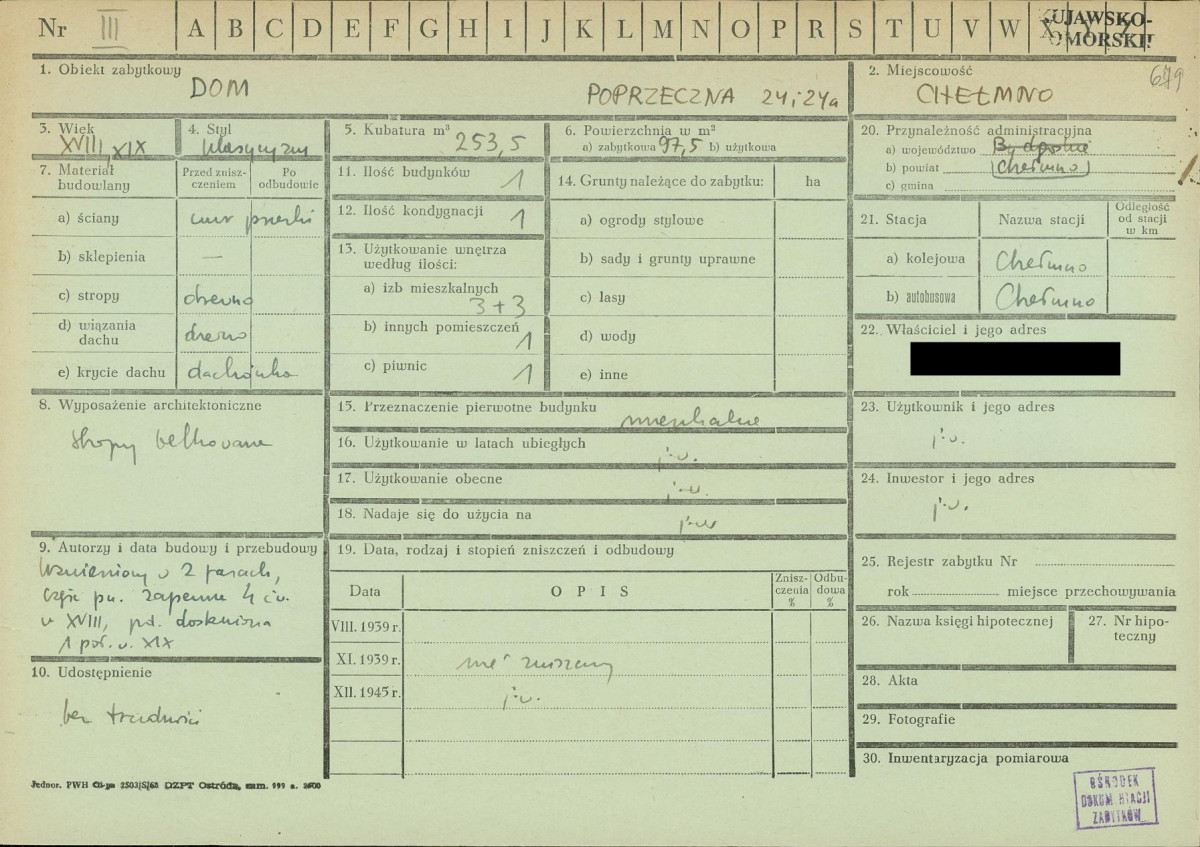 Nr III A B C D E F G H I J K L M N O P R S T U V W X
KUJAWSKO-
POMORSKIE
1. Obiekt zabytkowy
DOM POPRZECZNA 24 i 24a
2. Miejscowość 679
CHEŁMNO
3. Wiek
XVIII, XIX
4. Styl
klasycyzm
5. Kubatura m³ 253,5
6. Powierzchnia w m²
a) zabytkowa 97,5 b) użytkowa
20. Przynależność administracyjna
a) województwo Bydgoskie
b) powiat Chełmno
c) gmina
7. Materiał budowlany
Przed zniszczeniem
Po odbudowie
a) ściany mur pruski
b) sklepienia —
c) stropy drewno
d) wiązania dachu drewno
e) krycie dachu dachówka
11. Ilość budynków 1
12. Ilość kondygnacji 1
13. Użytkowanie wnętrza
według ilości:
a) izb mieszkalnych
3+3
b) innych pomieszczeń 1
c) piwnic 1
14. Grunty należące do zabytku: ha
a) ogrody stylowe
b) sady i grunty uprawne
c) lasy
d) wody
e) inne
21. Stacja Nazwa stacji
Odległość
od stacji
w km
a) kolejowa Chełmno
b) autobusowa Chełmno
22. Właściciel i jego adres
8. Wyposażenie architektoniczne
stropy belkowane
15. Przeznaczenie pierwotne budynku
mieszkalne
16. Użytkowanie w latach ubiegłych
j.w.
17. Użytkowanie obecne
j.w.
18. Nadaje się do użycia na
j.w.
23. Użytkownik i jego adres
j.w.
24. Inwestor i jego adres
j.w.
9. Autorzy i data budowy i przebudowy
Wzniesiony w 2 fazach,
część pn. zapewne 4 ćw.
w XVIII, pd. dostawiona
1 poł. w. XIX
10. Udostępnienie
bez trudności
19. Data, rodzaj i stopień zniszczeń i odbudowy
Data OPIS
Zniszczenia %
Odbudowa %
VIII. 1939 r.
XI. 1939 r. nie zniszczony
XII. 1945 r. j.w.
25. Rejestr zabytku Nr
rok miejsce przechowywania
26. Nazwa księgi hipotecznej
27. Nr hipoteczny
28. Akta
29. Fotografie
30. Inwentaryzacja pomiarowa
OŚRODEK
DOKUMENTACJI
ZABYTKÓW